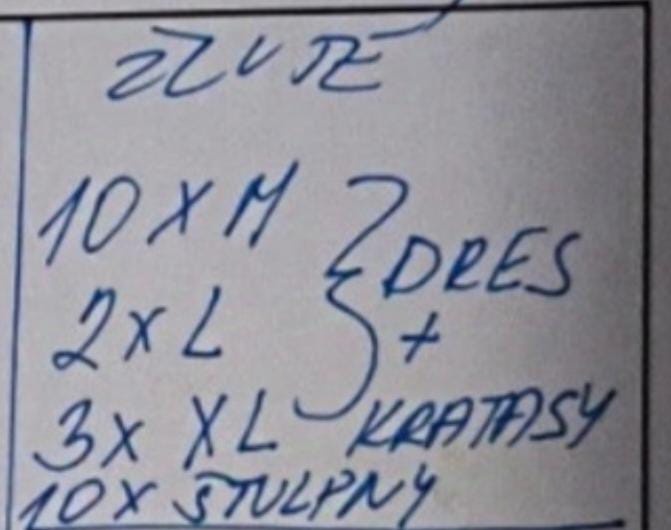 10 X M
2 X L
3 X XL
} DRES
+
KRATASY
10X STULPNY